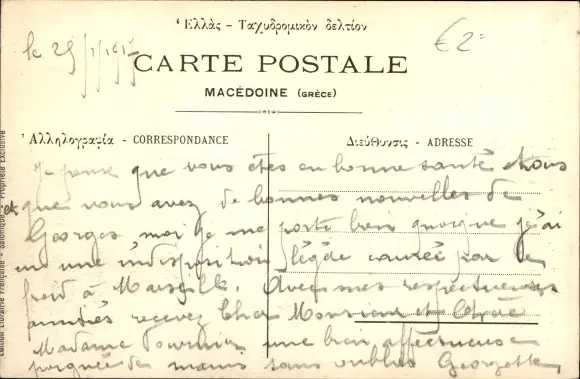 Ἑλλὰς - Ταχυδρομικὸν δελτίον
€2=
le 29/1/1917
CARTE POSTALE
MACÉDOINE (GRÈCE)
Ἀλληλογραφία - CORRESPONDANCE
Διεύθυνσις - ADRESSE
Je pense que vous êtes en bonne santé
et que vous avez de bonnes nouvelles de
Georges moi je me porte bien quoique j'ai
eu une indisposition légère causée par le
froid à Marseille. Avec mes respectueuses
amitiés recevez Cher Monsieur et Chère
Madame une bien affectueuse
poignée de mains sans oublier Georgette
Edition Librairie Française - Salonique - Propriété Exclusive